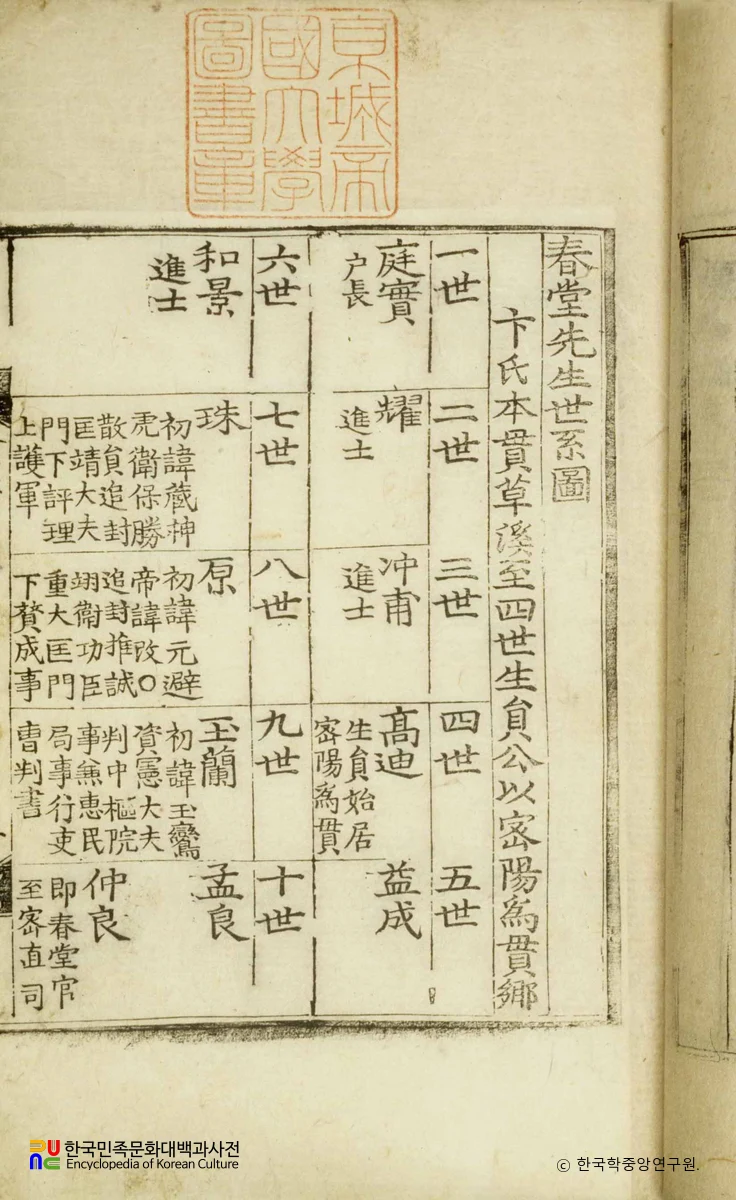 京城帝
國大學
圖書章
春堂先生世系圖
卞氏本貫草溪至四世生員公以密陽為貫鄉
一世
二世
三世
四世
五世
庭實
戶長
耀
進士
冲甫
進士
高迪
生員始居
密陽為貫
益成
六世
七世
八世
九世
十世
和景
進士
珠
初諱葳神
虎衛保勝
散員追封
匡靖大夫
門下評理
上護軍
原
初諱元避
帝諱改○
追封推誠
翊衛功臣
重大匡門
下贊成事
玉蘭
初諱玉鸞
資憲大夫
判中樞院
事兼惠民
局事行吏
曹判書
孟良
仲良
即春堂官
至密直司
한국민족문화대백과사전
Encyclopedia of Korean Culture
© 한국학중앙연구원.